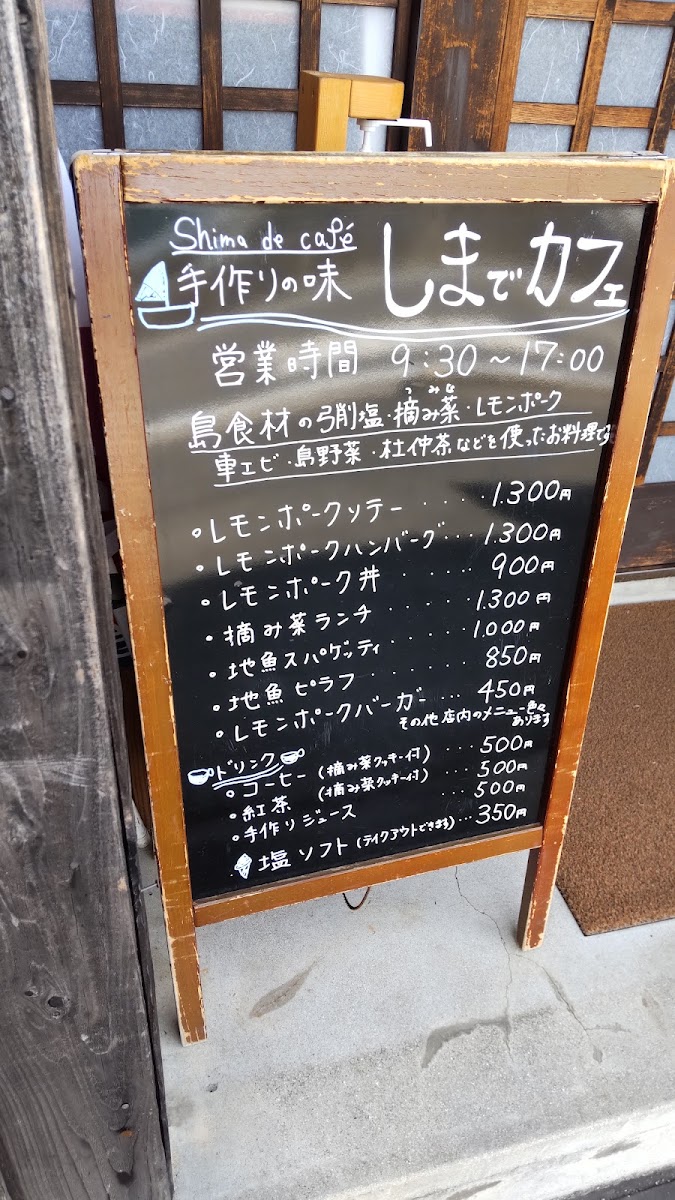 Shima de café
手作りの味 しまでカフェ
営業時間 9:30～17:00
つみな
島食材の弓削塩・摘み菜・レモンポーク
車エビ・島野菜・杜仲茶などを使ったお料理です
・レモンポークソテー ‥‥ 1.300円
・レモンポークハンバーグ ‥‥ 1.300円
・レモンポーク丼 ‥‥ 900円
・摘み菜ランチ ‥‥ 1.300円
・地魚スパゲッティ ‥‥ 1.000円
・地魚ピラフ ‥‥ 850円
・レモンポークバーガー ‥‥ 450円
その他店内のメニュー色々
あります
ドリンク
・コーヒー (摘み菜クッキー付) ‥‥ 500円
・紅茶 (摘み菜クッキー付) ‥‥ 500円
・手作りジュース ‥‥ 500円
塩ソフト (テイクアウトできます) ‥‥ 350円